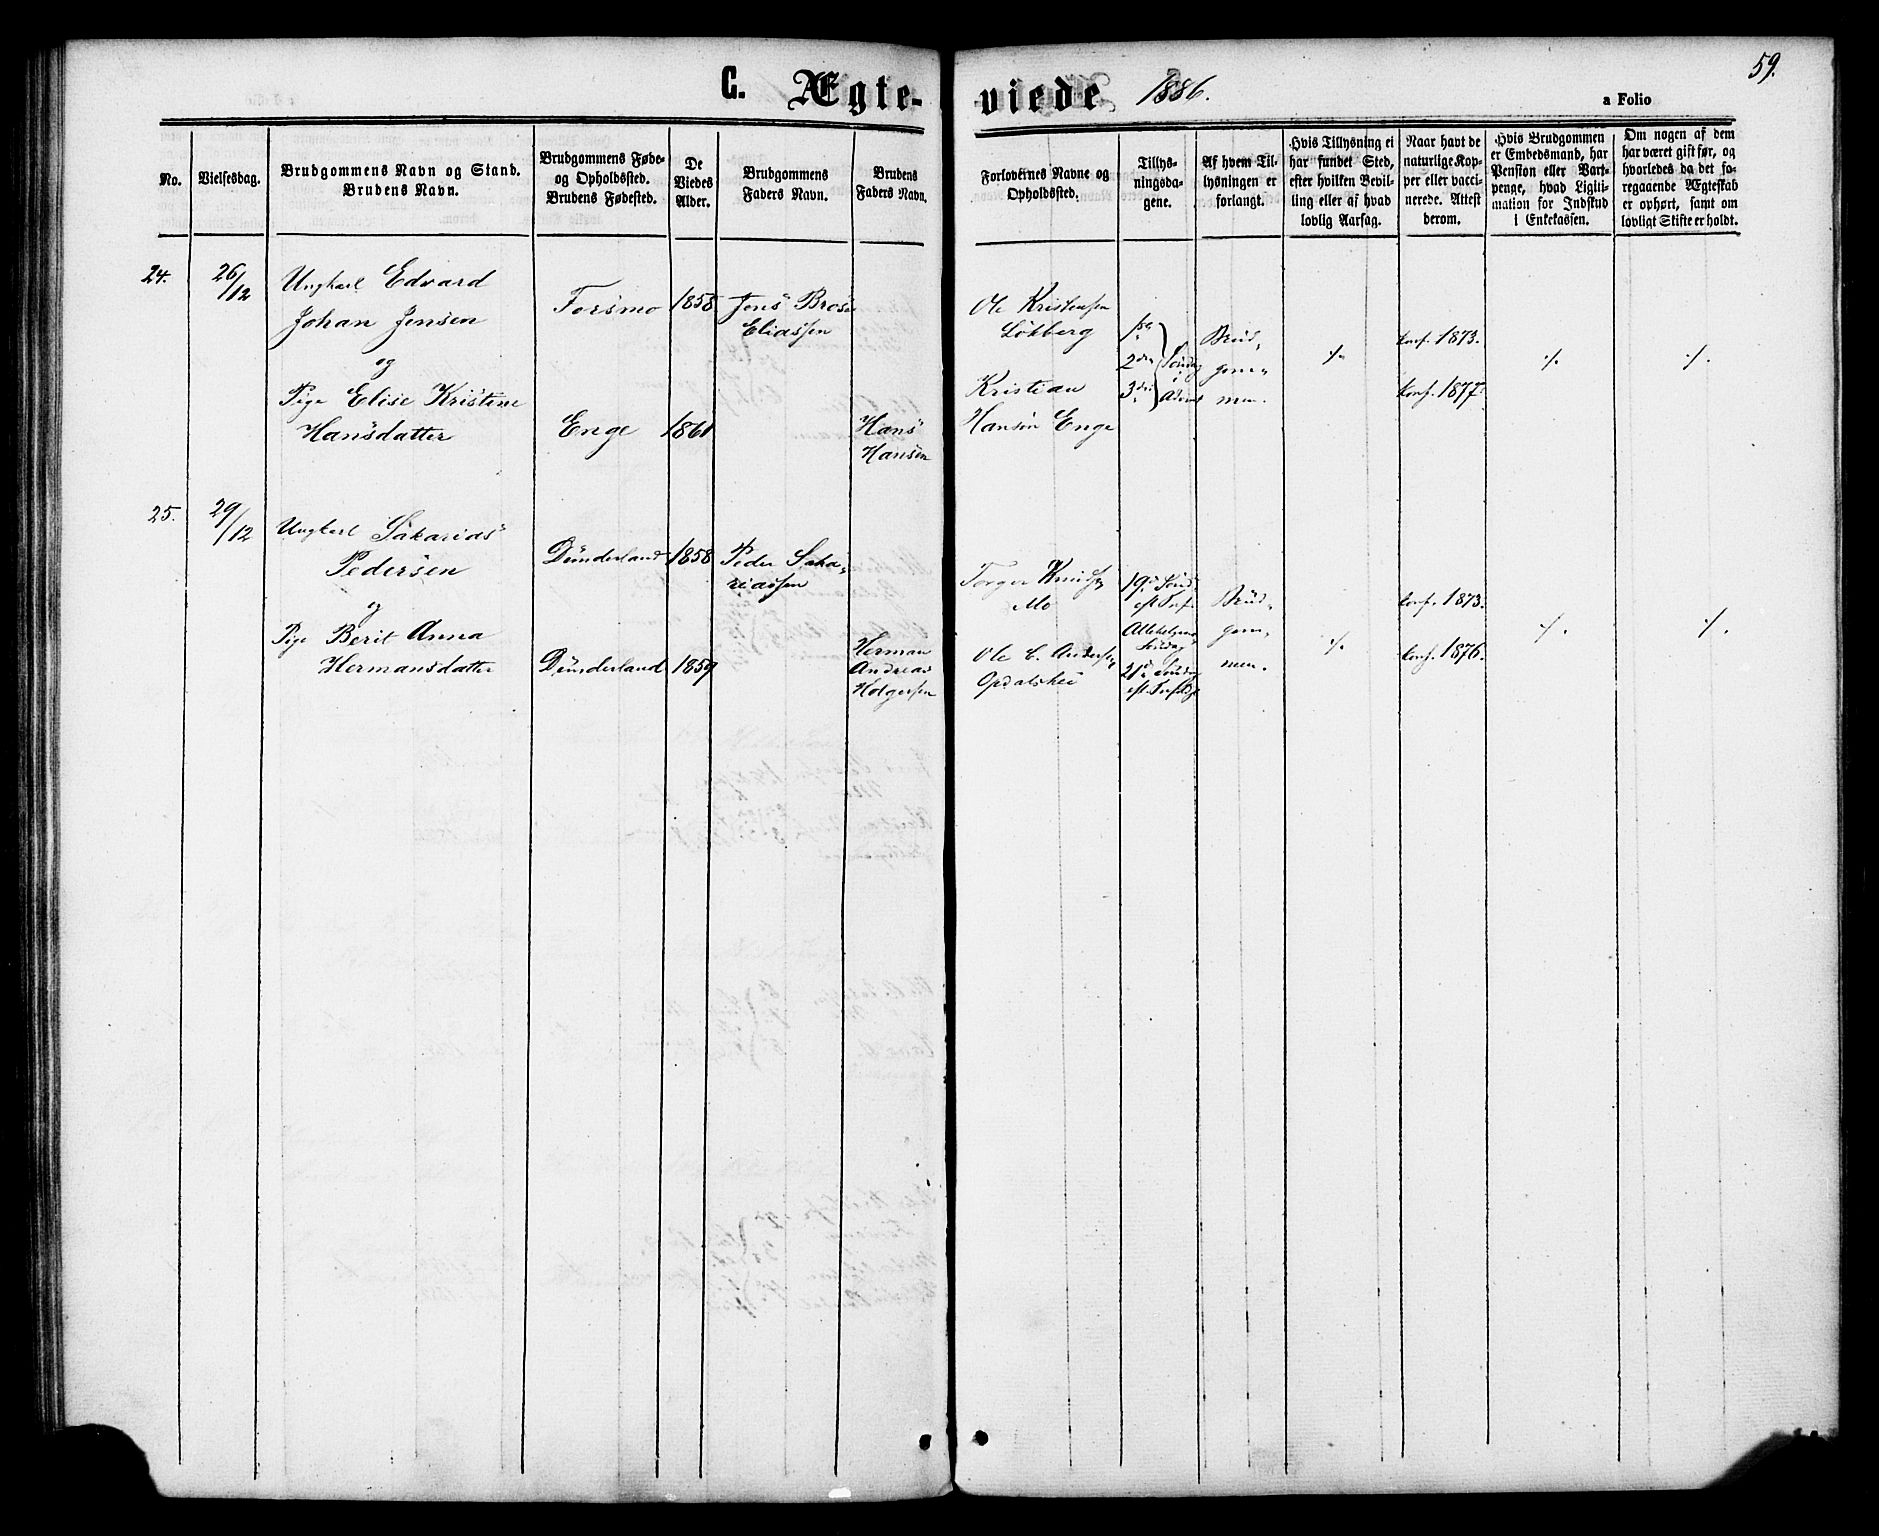 59.
G. Ægte-viede 1886.
a Folio
No.
Vielsesdag.
Brudgommens Navn og Stand.
Brudens Navn.
Brudgommens Føde-
og Opholdssted.
Brudens Fødested.
De
Viedes
Alder.
Brudgommens
Faders Navn.
Brudens
Faders Navn.
Forlovernes Navne og
Opholdssted.
Tillys-
ningsda-
gene.
Af hvem Til-
lysningen er
forlangt.
Hvis Tillysning ei
har fundet Sted,
efter hvilken Bevil-
ling eller af hvad
lovlig Aarsag.
Naar havt de
naturlige Kop-
per eller vacci-
nerede. Attest
derom.
Hvis Brudgommen
er Embedsmand, har
Pension eller Vart-
penge, hvad Ligiti-
mation for Indskud
i Enkekassen.
Om nogen af dem
har været gift før, og
hvorledes da det fo-
regaaende Ægteskab
er ophørt, samt om
lovligt Skifte er holdt.
24.
26/12
Ungkarl Edvard
Johan Jensen
og
Pige Elise Kristine
Hansdatter
Forsmo
Enge
1858
1861
Jens
Eliassen
Hans
Hansen
Ole Kristensen
Løkberg
Kristian
Hansen Enge
1ste
2den
3die
Søndag
i
Advent
Brud-
gom-
men.
./.
konf. 1873.
konf. 1877.
./.
./.
25.
29/12
Ungkarl Sakarias
Pedersen
og
Pige Berit Anna
Hermansdatter
Dunderland
Dunderland
1858
1859
Peder Saka-
riassen
Herman
Andreas
Holgersen
Torger Knudsen
Mo
Ole C. Andersen
Opdalshei
19de Sønd.
eft. Tref.
Allehelgens
Søndag
21de Søndag
eft. Trefdgt
Brud-
gom-
men.
./.
konf. 1873.
konf. 1876.
./.
./.